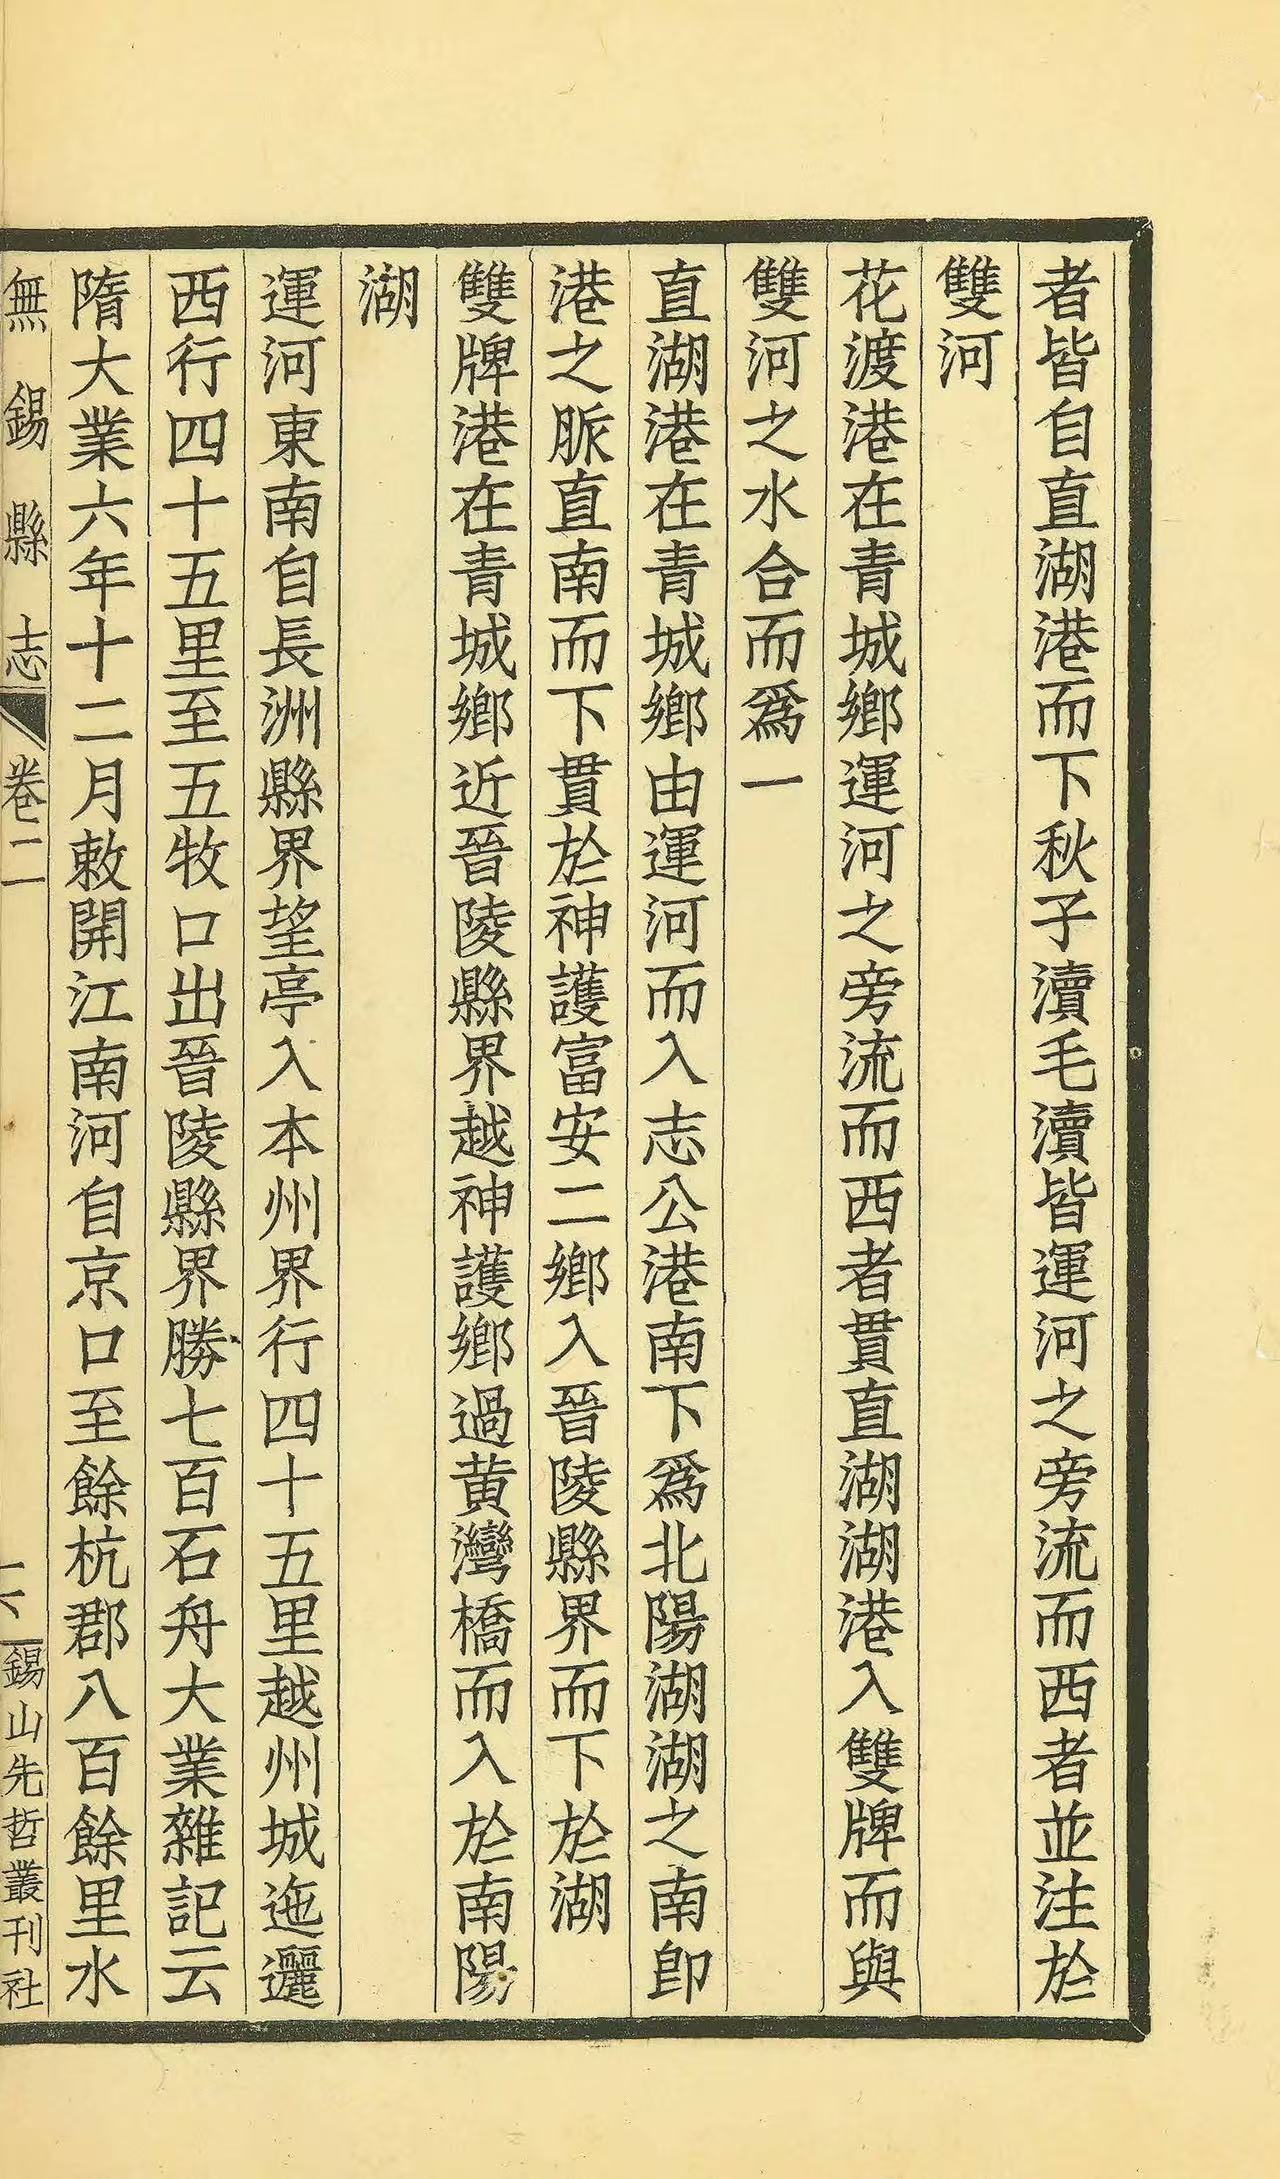 者皆自直湖港而下秋子瀆毛瀆皆運河之旁流而西者並注於
雙河
花渡港在青城鄉運河之旁流而西者貫直湖湖港入雙牌而與
雙河之水合而爲一
直湖港在青城鄉由運河而入志公港南下爲北陽湖湖之南即
港之脈直南而下貫於神護富安二鄉入晉陵縣界而下於湖
雙牌港在青城鄉近晉陵縣界越神護鄉過黄灣橋而入於南陽
湖
運河東南自長洲縣界望亭入本州界行四十五里越州城迤邐
西行四十五里至五牧口出晉陵縣界勝七百石舟大業雜記云
隋大業六年十二月敕開江南河自京口至餘杭郡八百餘里水
無錫縣志 卷二 十六 錫山先哲叢刊社